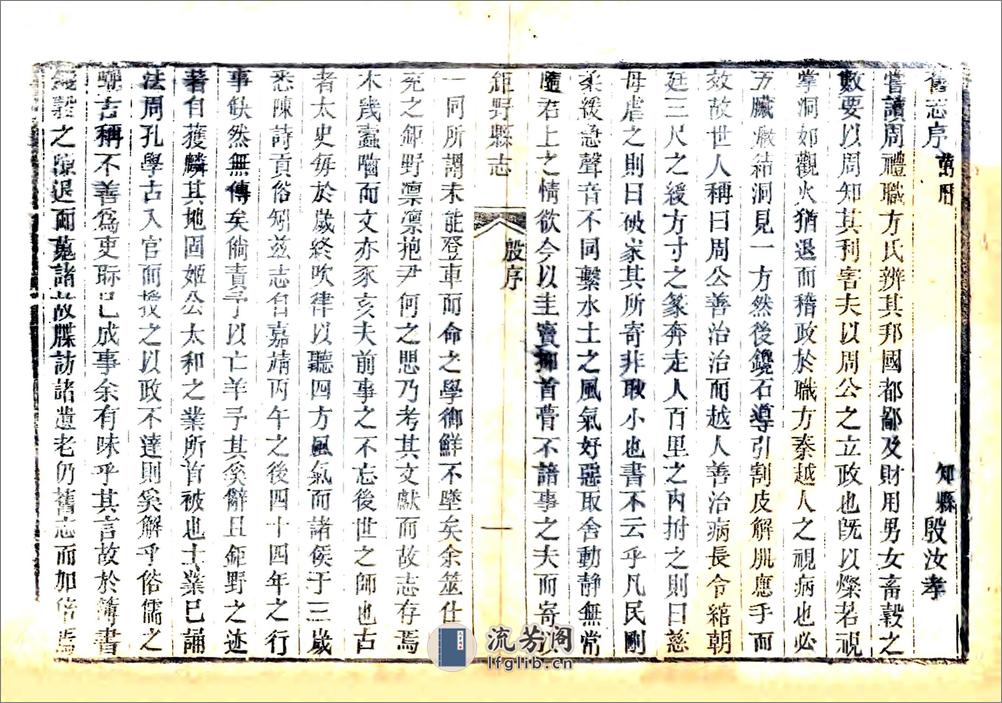 舊志序 萬曆 知縣殷汝孝
嘗讀周禮職方氏辨其邦國都鄙及財用男女畜穀之
數要以周知其利害夫以周公之立政也既以燦若視
掌洞如觀火猶退而稽政於職方秦越人之視病也必
五臟癥結洞見一方然後鑱石導引割皮解肌應手而
效故世人稱曰周公善治治而越人善治病長令綰朝
廷三尺之綬方寸之篆奔走人百里之內拊之則曰慈
母虐之則曰破家其所寄非眇小也書不云乎凡民剛
柔緩急聲音不同繫水土之風氣好惡取舍動靜無常
隨君上之情欲今以圭竇抑首膏不諳事之夫而寄以
鉅野縣志 殷序 一
一同所謂未能登車而命之學御鮮不墜矣余筮仕
兗之鉅野凜凜抱尹何之思乃考其文獻而故志存焉
木歲蠹嚙而文亦豕亥夫前事之不忘後世之師也古
者太史每於歲終吹律以聽四方風氣而諸侯于三歲
悉陳詩貢俗矧茲志自嘉靖丙午之後四十四年之行
事缺然無傳矣倘責予以亡羊予其奚辭且鉅野之迹
著自獲麟其地固姬公太和之業所首被也士業已誦
法周孔學古入官而授之以政不達則奚解乎俗儒之
古稱不善為吏眎已成事余有味乎其言故於簿書
錢穀之隙退而蒐諸故牒訪諸遺老仍舊志而加俻焉
流芳閣
lfglib.cn